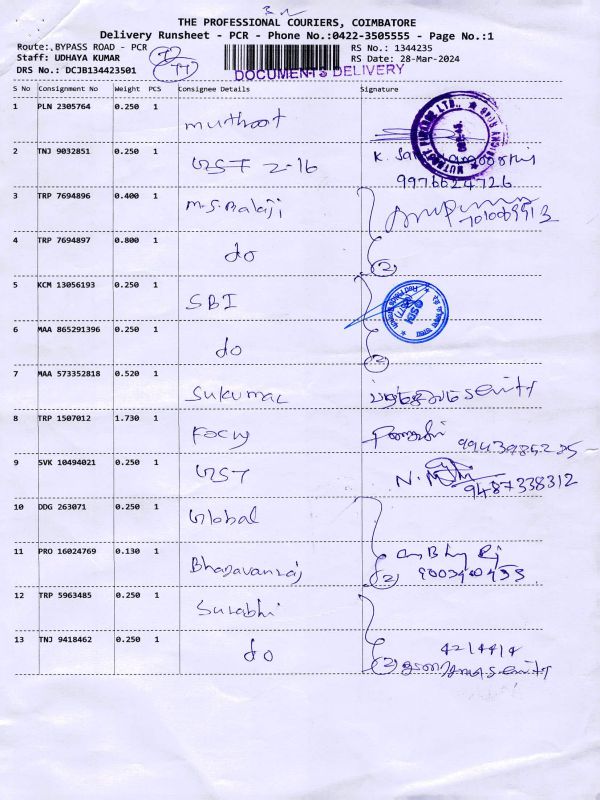 THE PROFESSIONAL COURIERS, COIMBATORE
Delivery Runsheet - PCR - Phone No.:0422-3505555 - Page No.:1
Route: BYPASS ROAD - PCR
RS No.: 1344235
Staff: UDHAYA KUMAR
RS Date: 28-Mar-2024
DRS No.: DCJB134423501
DOCUMENTS DELIVERY
S No Consignment No Weight PCS Consignee Details Signature
1 PLN 2305764 0.250 1 muthoot
2 TNJ 9032851 0.250 1 UST 2-16
9976624726
3 TRP 7694896 0.400 1 M.S. Balaji
4 TRP 7694897 0.800 1 do 2
5 KCM 13056193 0.250 1 SBI
6 MAA 865291396 0.250 1 do 2
7 MAA 573352818 0.520 1 Sukumar
8 TRP 1507012 1.730 1 Focus
9 SVK 10494021 0.250 1 UST N.
9487338312
10 DDG 263071 0.250 1 Global
11 PRO 16024769 0.130 1 Bhagavanraj 2
12 TRP 5963485 0.250 1 Surabhi
13 TNJ 9418462 0.250 1 do 2